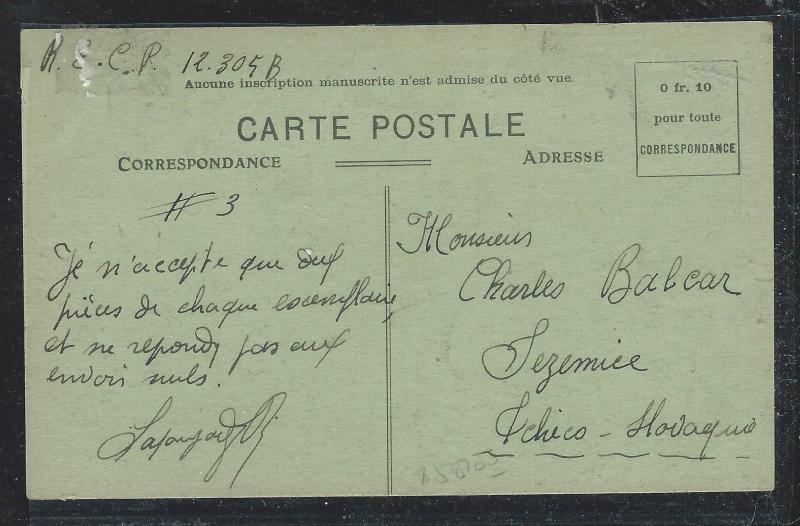 R. E. C. P. 12.305 B
Aucune inscription manuscrite n'est admise du côté vue.
0 fr. 10
pour toute
CORRESPONDANCE
CARTE POSTALE
CORRESPONDANCE
ADRESSE
# 3
Je n'accepte que
pièces de chaque
et ne réponds pas aux
envois nuls.
Monsieur
Charles Balcar
Sezemice
Tchéco-Slovaquie